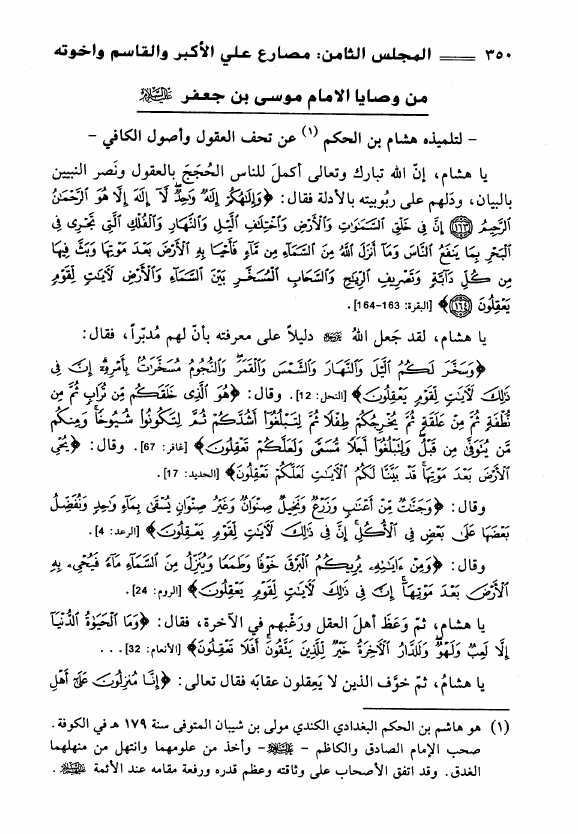 ٣٥٠ ــــــ المجلس الثامن: مصارع علي الأكبر والقاسم واخوته
من وصايا الامام موسى بن جعفر عليه السلام
- لتلميذه هشام بن الحكم (١) عن تحف العقول وأصول الكافي -
يا هشام، إنّ الله تبارك وتعالى أكملَ للناس الحُجَجَ بالعقول ونَصر النبيين
بالبيان، ودَلهم على ربُوبيته بالأدلة فقال: ﴿وَإِلَٰهُكُمْ إِلَٰهٌ وَٰحِدٌ ۖ لَّآ إِلَٰهَ إِلَّا هُوَ ٱلرَّحْمَٰنُ
ٱلرَّحِيمُ ﴿١٦٣﴾ إِنَّ فِى خَلْقِ ٱلسَّمَٰوَٰتِ وَٱلْأَرْضِ وَٱخْتِلَٰفِ ٱلَّيْلِ وَٱلنَّهَارِ وَٱلْفُلْكِ ٱلَّتِى تَجْرِى فِى
ٱلْبَحْرِ بِمَا يَنفَعُ ٱلنَّاسَ وَمَآ أَنزَلَ ٱللَّهُ مِنَ ٱلسَّمَآءِ مِن مَّآءٍ فَأَحْيَا بِهِ ٱلْأَرْضَ بَعْدَ مَوْتِهَا وَبَثَّ فِيهَا
مِن كُلِّ دَآبَّةٍ وَتَصْرِيفِ ٱلرِّيَٰحِ وَٱلسَّحَابِ ٱلْمُسَخَّرِ بَيْنَ ٱلسَّمَآءِ وَٱلْأَرْضِ لَءَايَٰتٍ لِّقَوْمٍ
يَعْقِلُونَ ﴿١٦٤﴾﴾ [البقرة: 163-164].
يا هشام، لقد جَعل اللهُ دليلاً على معرفته بأنّ لهم مُدبّراً، فقال:
﴿وَسَخَّرَ لَكُمُ ٱلَّيْلَ وَٱلنَّهَارَ وَٱلشَّمْسَ وَٱلْقَمَرَ ۖ وَٱلنُّجُومُ مُسَخَّرَٰتٌۢ بِأَمْرِهِۦٓ ۗ إِنَّ فِى
ذَٰلِكَ لَءَايَٰتٍ لِّقَوْمٍ يَعْقِلُونَ﴾ [النحل: 12]. وقال: ﴿هُوَ ٱلَّذِى خَلَقَكُم مِّن تُرَابٍ ثُمَّ مِن
نُّطْفَةٍ ثُمَّ مِنْ عَلَقَةٍ ثُمَّ يُخْرِجُكُمْ طِفْلًا ثُمَّ لِتَبْلُغُوٓا۟ أَشُدَّكُمْ ثُمَّ لِتَكُونُوا۟ شُيُوخًا ۚ وَمِنكُم
مَّن يُتَوَفَّىٰ مِن قَبْلُ ۖ وَلِتَبْلُغُوٓا۟ أَجَلًا مُّسَمًّى وَلَعَلَّكُمْ تَعْقِلُونَ﴾ [غافر: 67]. وقال: ﴿يُحْىِ
ٱلْأَرْضَ بَعْدَ مَوْتِهَا ۚ قَدْ بَيَّنَّا لَكُمُ ٱلْءَايَٰتِ لَعَلَّكُمْ تَعْقِلُونَ﴾ [الحديد: 17].
وقال: ﴿وَجَنَّٰتٌ مِّنْ أَعْنَٰبٍ وَزَرْعٌ وَنَخِيلٌ صِنْوَانٌ وَغَيْرُ صِنْوَانٍ يُسْقَىٰ بِمَآءٍ وَٰحِدٍ وَنُفَضِّلُ
بَعْضَهَا عَلَىٰ بَعْضٍ فِى ٱلْأُكُلِ ۚ إِنَّ فِى ذَٰلِكَ لَءَايَٰتٍ لِّقَوْمٍ يَعْقِلُونَ﴾ [الرعد: 4].
وقال: ﴿وَمِنْ ءَايَٰتِهِۦ يُرِيكُمُ ٱلْبَرْقَ خَوْفًا وَطَمَعًا وَيُنَزِّلُ مِنَ ٱلسَّمَآءِ مَآءً فَيُحْىِۦ بِهِ
ٱلْأَرْضَ بَعْدَ مَوْتِهَآ ۚ إِنَّ فِى ذَٰلِكَ لَءَايَٰتٍ لِّقَوْمٍ يَعْقِلُونَ﴾ [الروم: 24].
يا هشام، ثمّ وَعَظَ أهلَ العقل ورَغّبهم في الآخرة، فقال: ﴿وَمَا ٱلْحَيَوٰةُ ٱلدُّنْيَآ
إِلَّا لَعِبٌ وَلَهْوٌ ۖ وَلَلدَّارُ ٱلْءَاخِرَةُ خَيْرٌ لِّلَّذِينَ يَتَّقُونَ ۗ أَفَلَا تَعْقِلُونَ﴾ [الأنعام: 32]. . .
يا هشامُ، ثمّ خوَّف الذين لا يَعقِلون عقابَه فقال تعالى: ﴿إِنَّا مُنزِلُونَ عَلَىٰٓ أَهْلِ
(١) هو هاشم بن الحكم البغدادي الكندي مولى بن شيبان المتوفى سنة ١٧٩ هـ في الكوفة.
صحب الإمام الصادق والكاظم - عليهما السلام - وأخذ من علومهما وانتهل من منهلهما
الغدق. وقد اتفق الأصحاب على وثاقته وعظم قدره ورفعة مقامه عند الأئمة عليهم السلام.